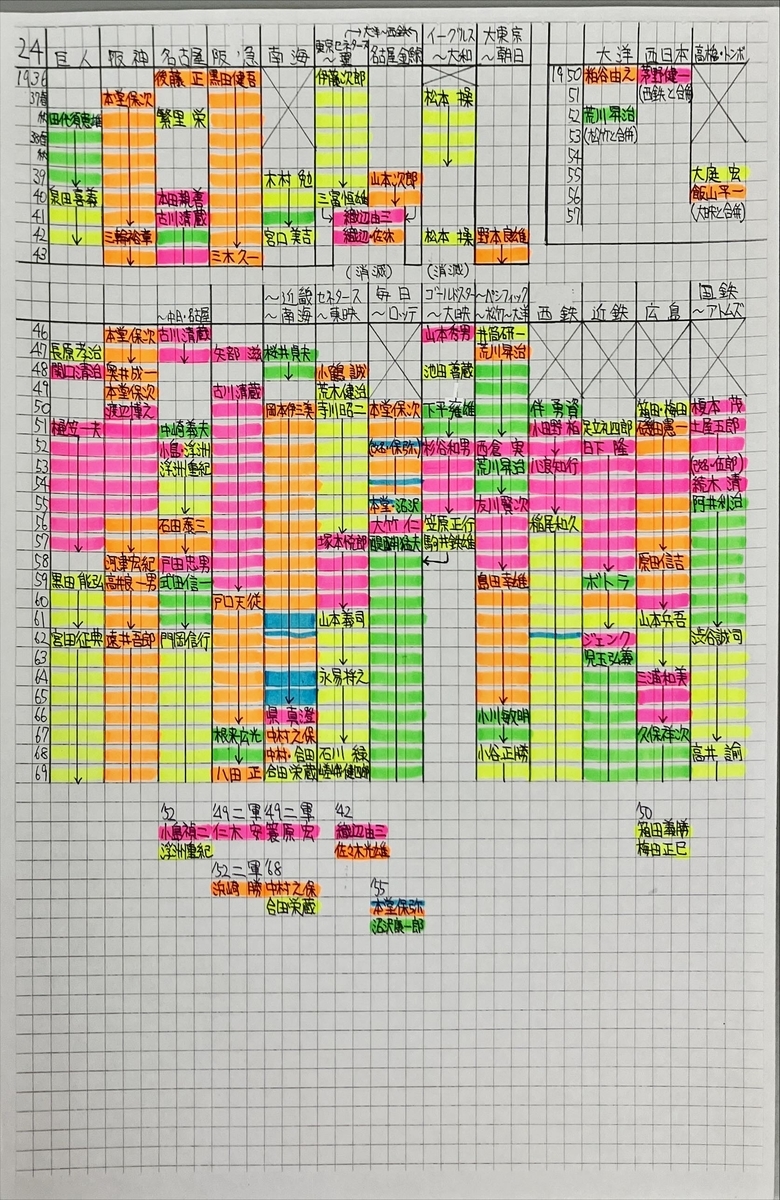 (→大洋〜西鉄↷)
24 巨人 阪神 名古屋 阪急 南海 東京セネタース〜翼 名古屋金鯱 イーグルス〜大和 大東京〜朝日 大洋 西日本 高橋・トンボ
1936 後藤 正 黒田健吾 伊藤次郎 1950 粕谷由之 茅野健一
37春 本堂保次 松本 操 51 (西鉄と合併)
秋 繁里 栄 52 荒川昇治
38春 53 (松竹と合併)
秋 54
39 木村 勉 山本次郎 55 大庭 宏
40 泉田喜義 本田親喜 三富恒雄 56 飯山平一
41 古川清蔵 織辺由三 57 (大映と合併)
42 三輪裕章 宮口美吉 松本 操 野本良雄
43 三木久一
(消滅) (消滅)
〜中日・名古屋 〜近畿〜南海 セネタース〜東映 毎日〜ロッテ ゴールドスター〜大映 〜パシフィック〜松竹〜大洋 西鉄 近鉄 広島 国鉄〜アトムズ
46 本堂保次 古川清蔵 山本秀男 井筒研一
47 長原孝治 矢部 滋 桜井貞夫 荒川昇治
48 関口清治 奥井成一 小鶴 誠 池田善蔵
49 本堂保次 古川清蔵 荒木健治
50 渡辺博之 岡本伊三美 寺川昭二 本堂保次 下平雄雄 伴 勇資 箱田・梅田 榎本 茂
51 樋笠一夫 中崎義夫 小田野 柏 足立礼四郎 磯田憲一 土屋五郎
52 小島・浮洲 (改名・保弥) 杉谷和男 西倉 実 日下 隆
53 浮洲重紀 荒川昇治 心良知行 (改名・伍郎)
54 続木 清
55 本堂・沼沢 友川賢次 阿井利治
56 石田泰三 大竹 仁 笠原正行 稲尾和久
57 塚本悦郎 醍醐猛夫 駒井鉄雄
58 河津宏紀 戸田忠男 原田信吉
59 黒田能弘 高井良一男 式田信一 島田幸雄 ボトラ
60 戸口天従
61 山本義司 山本兵吾
62 宮田征典 遠井吾郎 門岡信行 ジェンク 渋谷誠司
63 児玉弘義
64 永易将之 三浦和美
65
66 県 真澄 小川敏明
67 根来広光 中村之保 久保祥次
68 中村・合田 石川 緑 小谷正勝 高井 諭
69 八田 正 合田栄蔵 嵯峨健四郎
'52 '49二軍 '49二軍 '42 '50
小島禎二 仁木 安 簑原 宏 織辺由三 箱田義勝
浮洲重紀 佐々木光雄 梅田正巳
'52二軍 '68
浜崎 勝 中村之保 '55
合田栄蔵 本堂保弥
沼沢康一郎